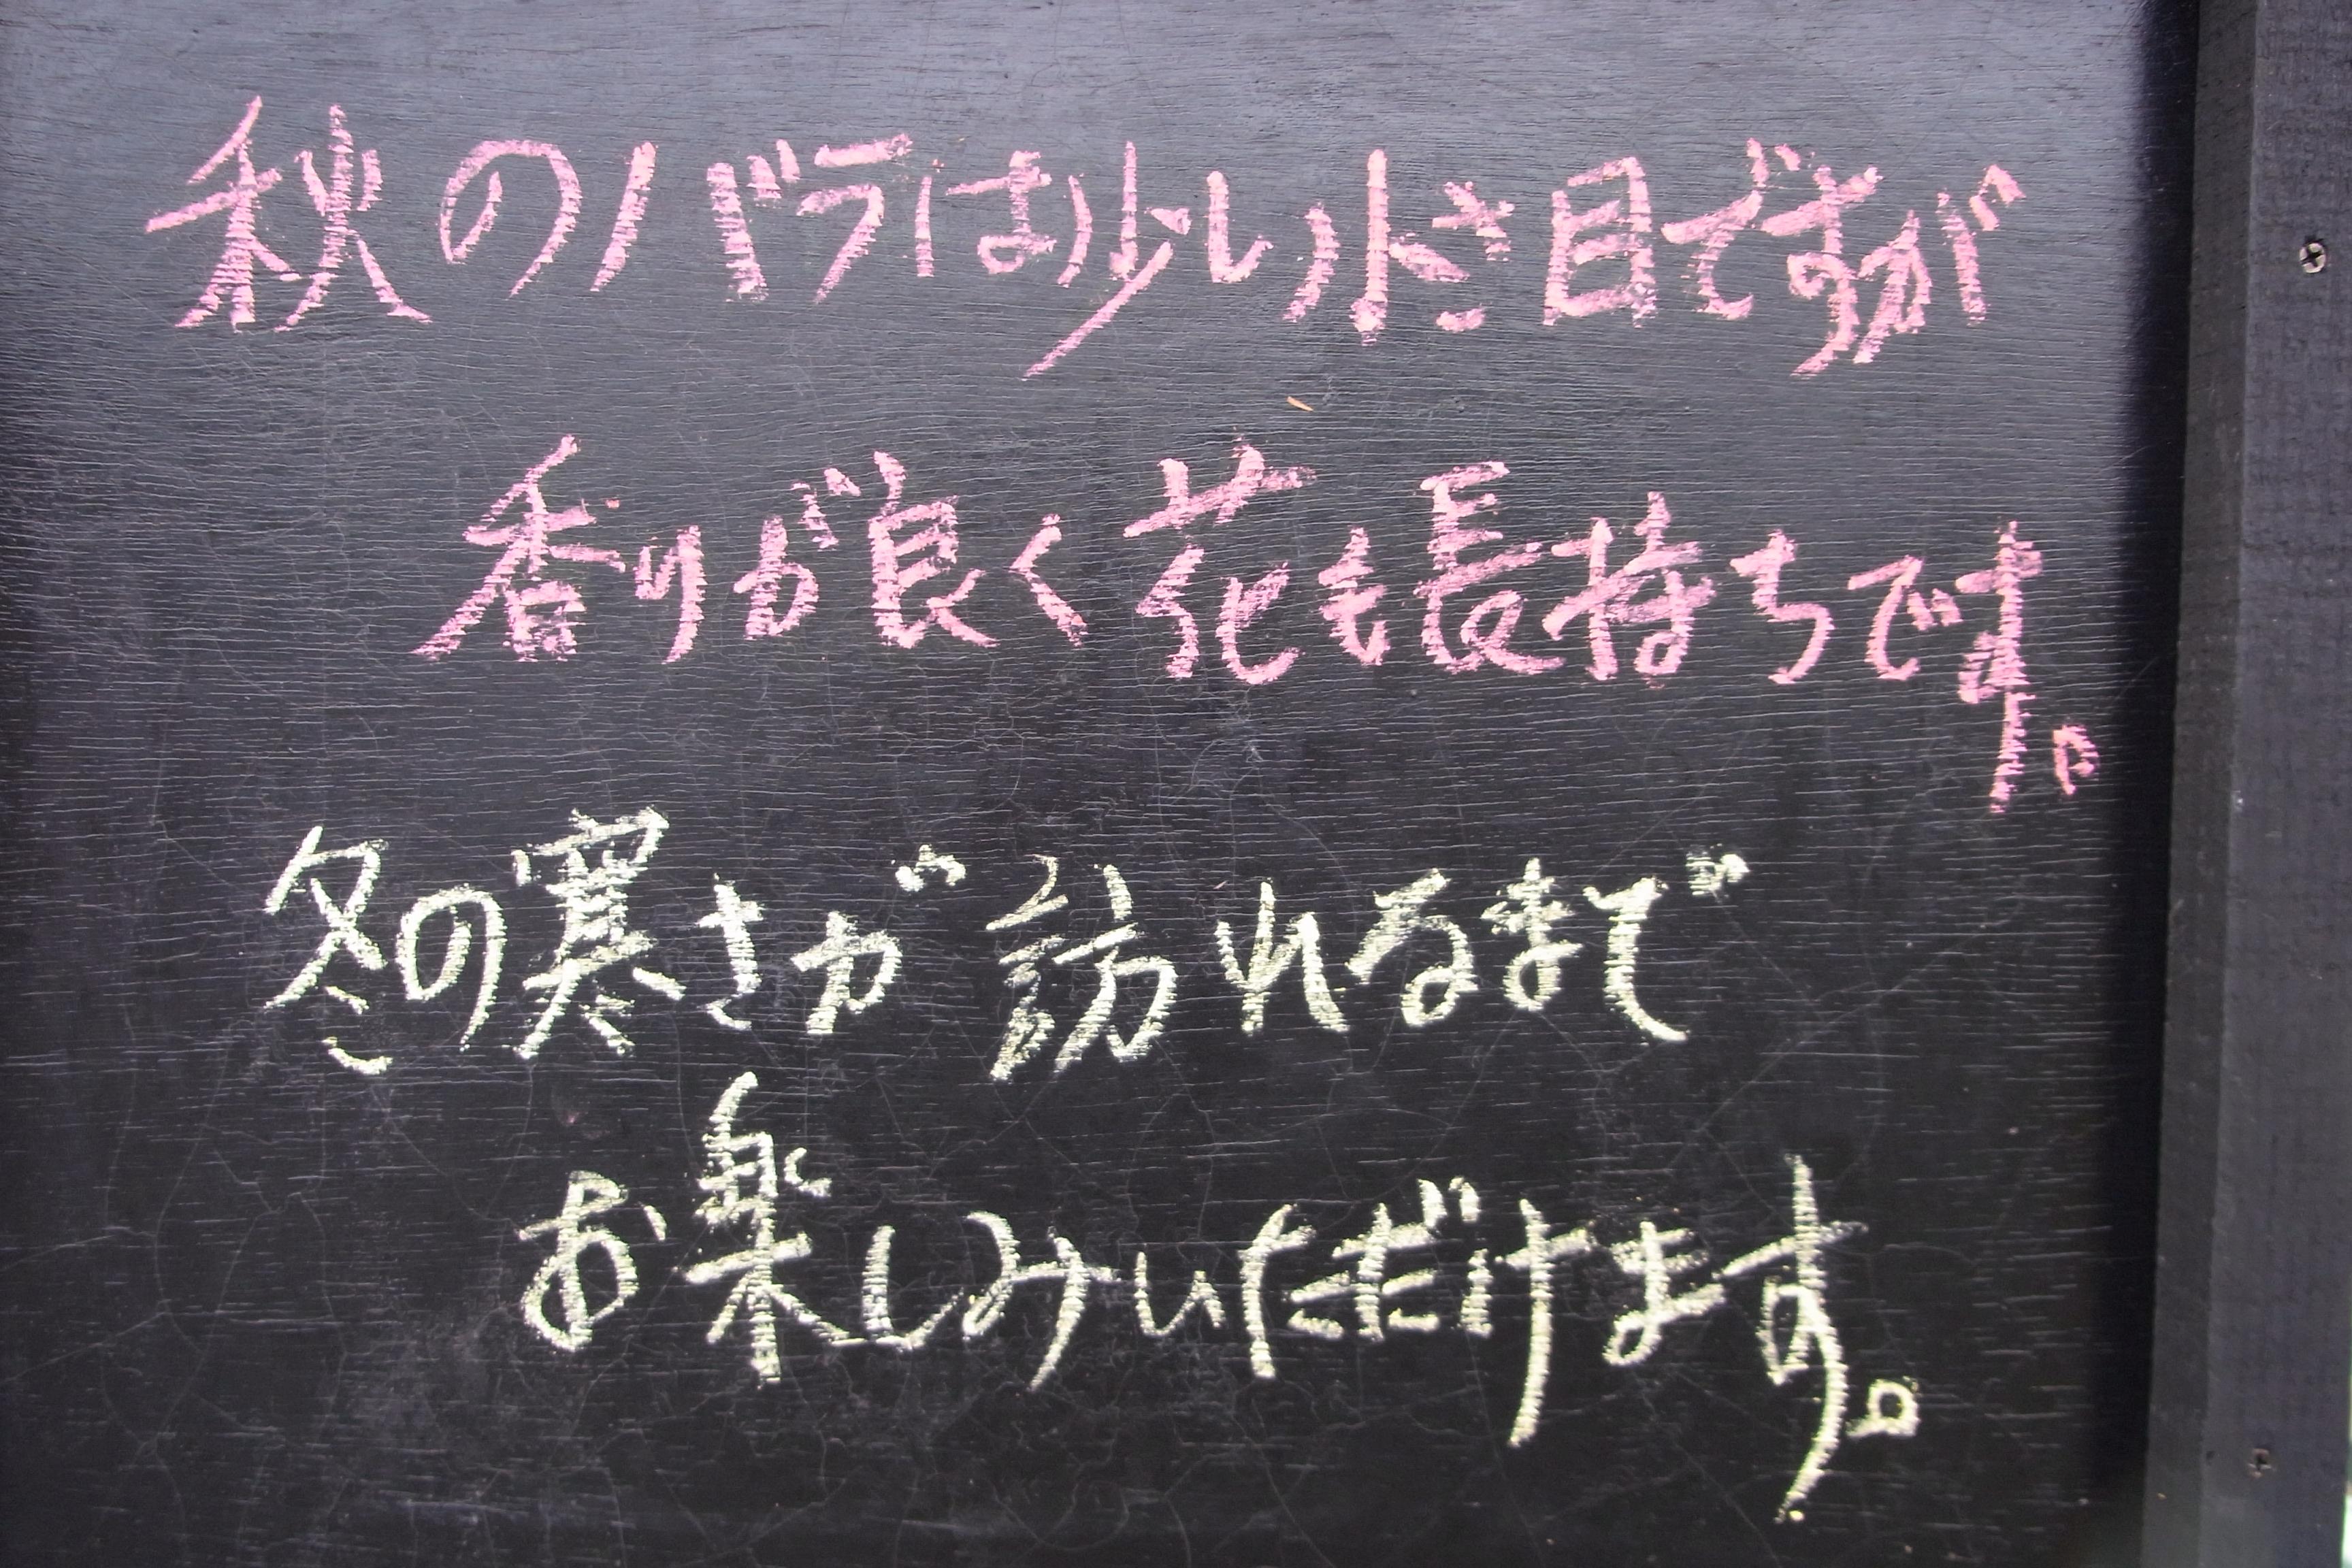 秋のバラは少し小さ目ですが
香りが良く花も長持ちです。
冬の寒さが訪れるまで
お楽しみいただけます。